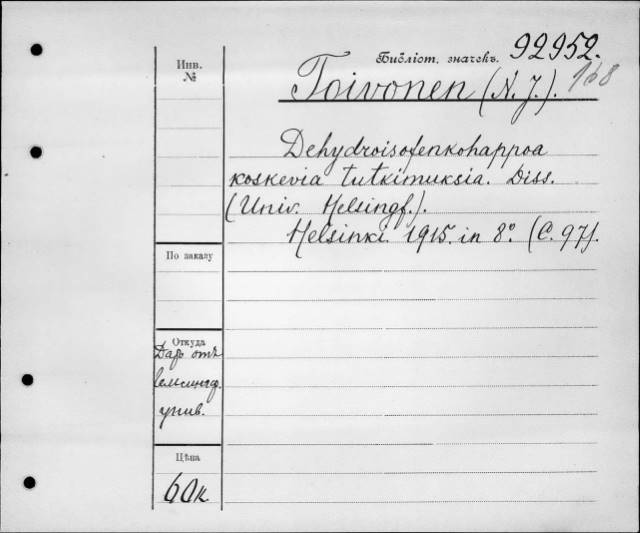 Инв.
№
Библіот. значекъ. 92952.
168
Toivonen (N. J.).
Dehydroisofenkohappoa
koskevia tutkimuksia. Diss.
(Univ. Helsingf.).
Helsinki. 1915. in 8°. (C. 97).
По заказу
Откуда
Даръ отъ
Гельсингф.
унив.
Цѣна
60к